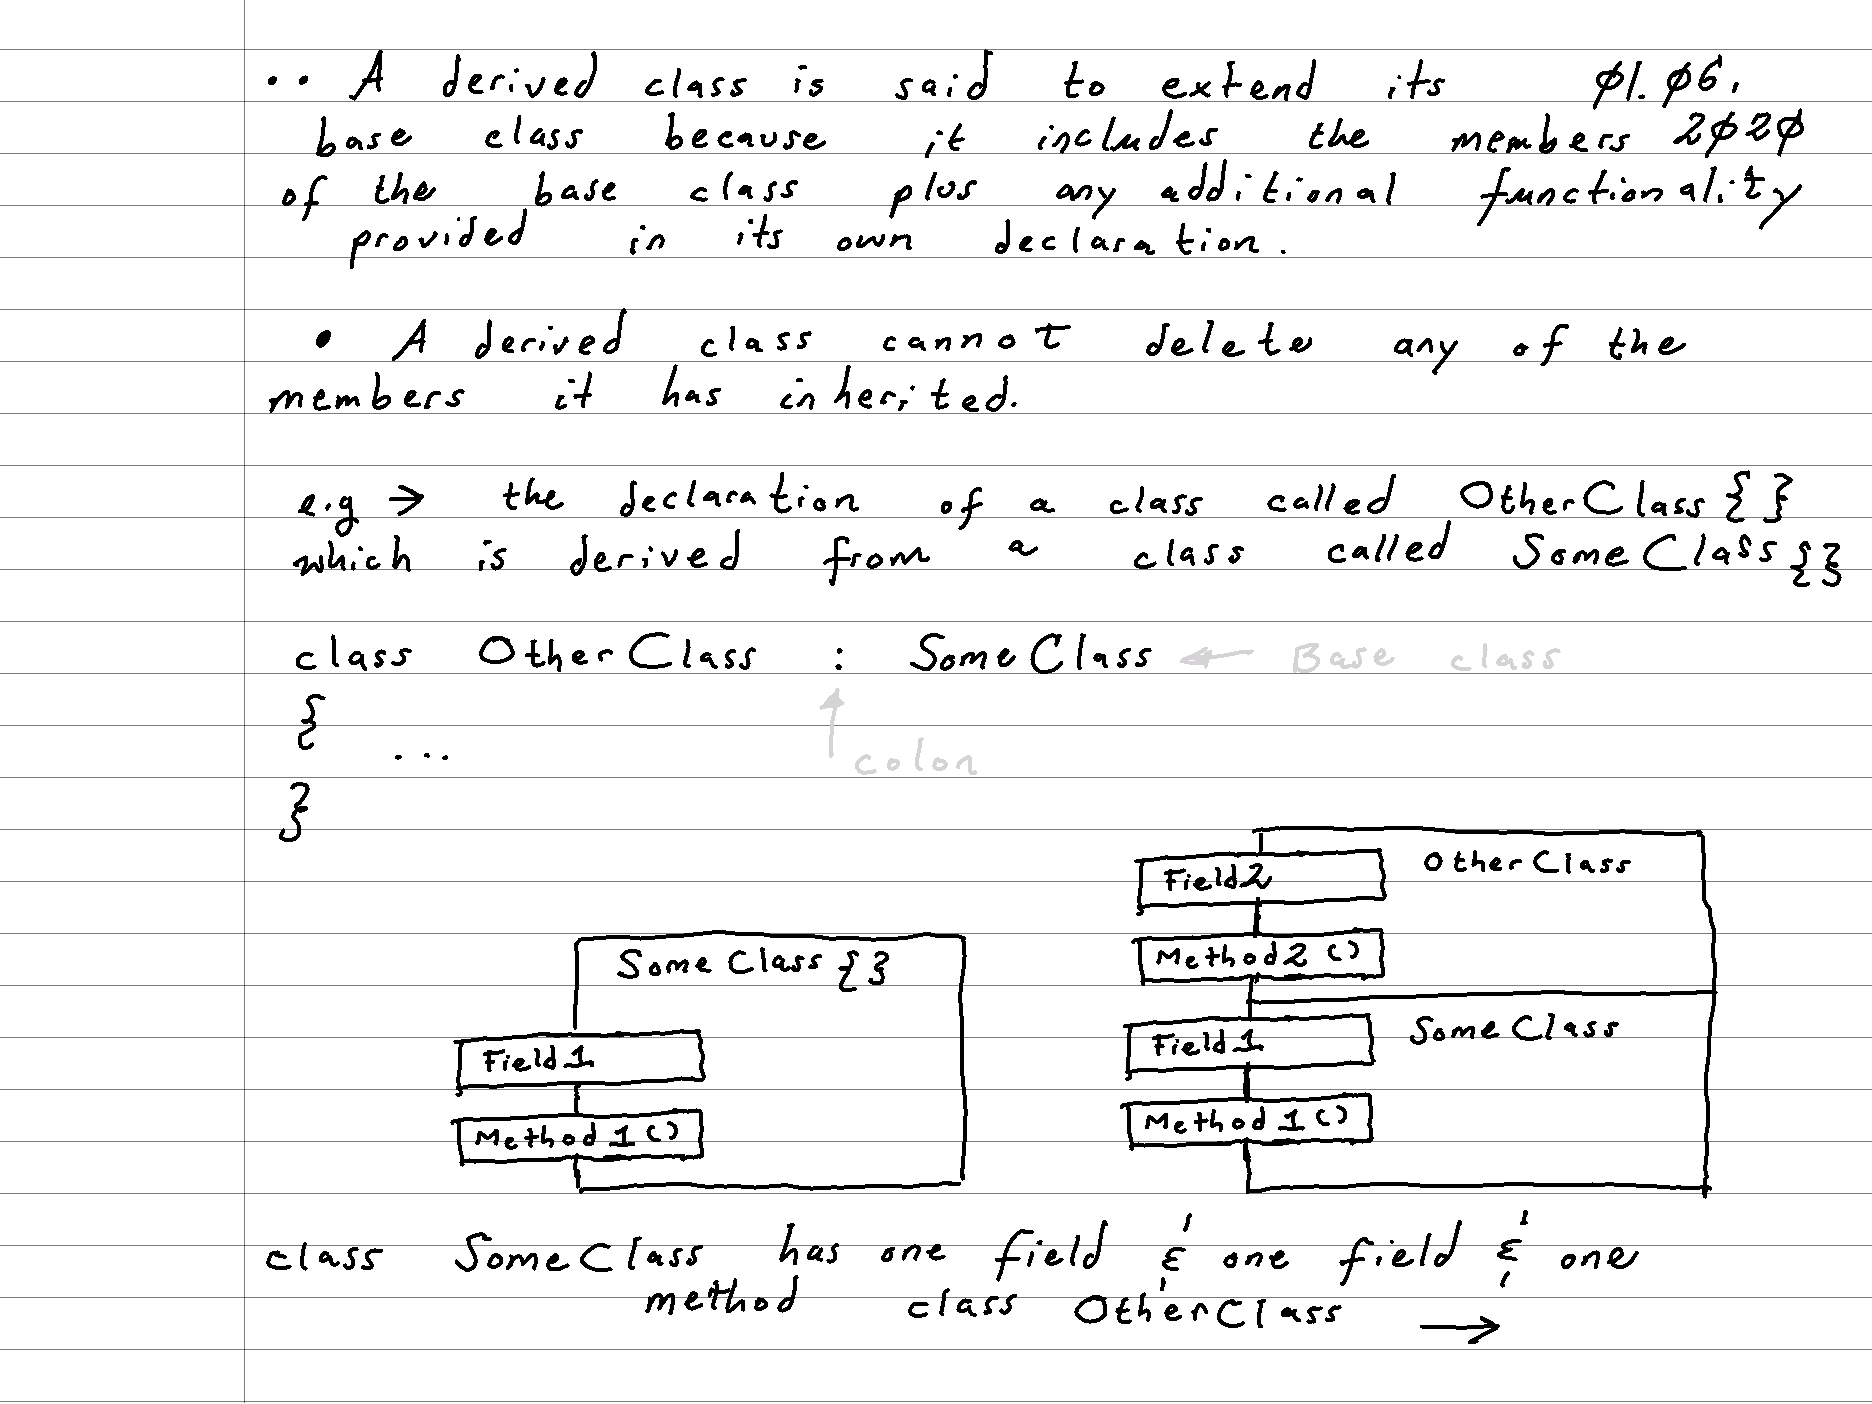 ·· A derived class is said to extend its Ø1.Ø6.
base class because it includes the members 2Ø2Ø
of the base class plus any additional functionality
provided in its own declaration.
• A derived class cannot delete any of the
members it has inherited.
e.g → the declaration of a class called OtherClass {}
which is derived from a class called SomeClass {}
class OtherClass : SomeClass ← Base class
{
... ↑ colon
}
SomeClass {}
Field1
Method1()
OtherClass
Field2
Method2()
SomeClass
Field1
Method1()
class SomeClass has one field & one field & one
method class OtherClass →